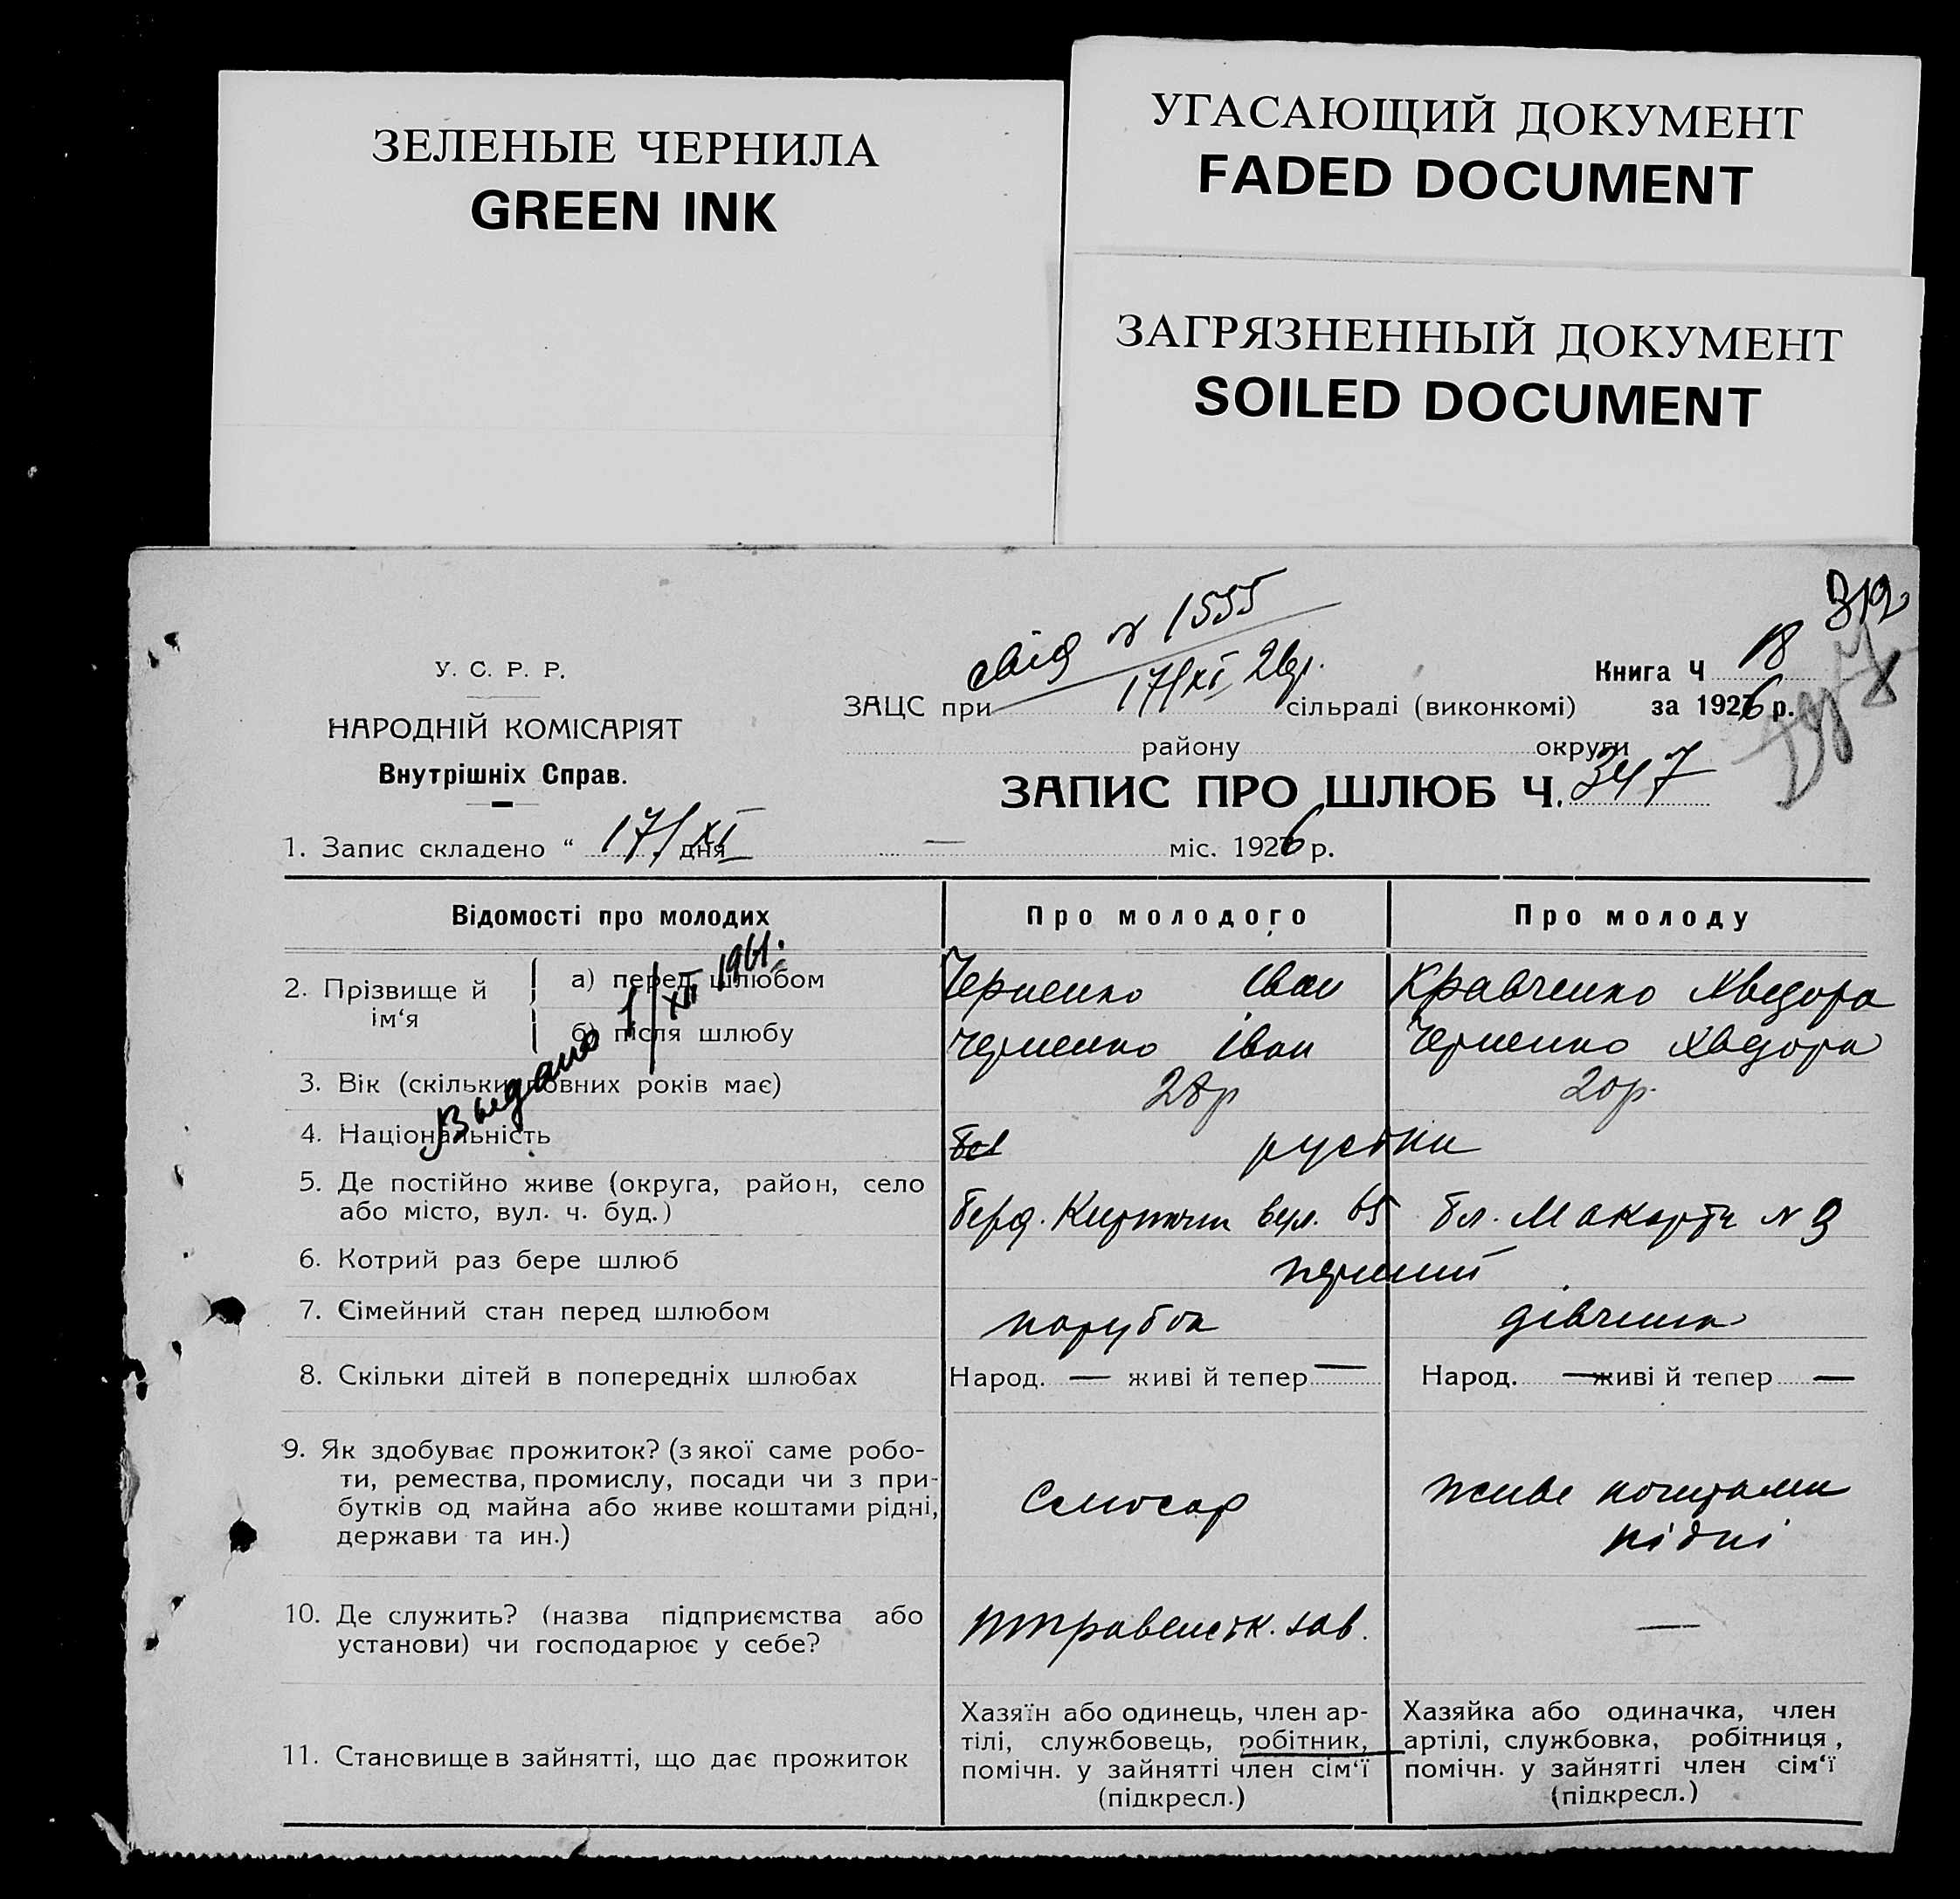 ЗЕЛЕНЫЕ ЧЕРНИЛА
GREEN INK
УГАСАЮЩИЙ ДОКУМЕНТ
FADED DOCUMENT
ЗАГРЯЗНЕННЫЙ ДОКУМЕНТ
SOILED DOCUMENT
312
У. С. Р. Р.
НАРОДНІЙ КОМІСАРІЯТ
Внутрішніх Справ.
свід № 1555
17/XI 26р.
Книга Ч 18
ЗАЦС при сільраді (виконкомі) за 1926 р.
району округи
ЗАПИС ПРО ШЛЮБ Ч. 347
1. Запис складено “ 17/XI дня — міс. 1926 р.
Відомості про молодих Про молодого Про молоду
2. Прізвище й ім‘я
а) перед шлюбом Черненко Іван Кравченко Хведора
б) після шлюбу Черненко Іван Черненко Хведора
Выдано 1/XII 1961.
3. Вік (скільки повних років має) 28р 20р.
4. Національність руські
5. Де постійно живе (округа, район, село
або місто, вул. ч. буд.) вул. 65 № 9
6. Котрий раз бере шлюб перший
7. Сімейний стан перед шлюбом парубок дівчина
8. Скільки дітей в попередніх шлюбах Народ. — живі й тепер — Народ. — живі й тепер —
9. Як здобуває прожиток? (з якої саме робо-
ти, ремества, промислу, посади чи з при-
бутків од майна або живе коштами рідні,
держави та ин.)
Слюсар
живе коштами
рідні
10. Де служить? (назва підприємства або
установи) чи господарює у себе?
зав.
—
11. Становище в зайнятті, що дає прожиток
Хазяїн або одинець, член ар-
тілі, службовець, робітник,
помічн. у зайнятті член сім‘ї
(підкресл.)
Хазяйка або одиначка, член
артілі, службовка, робітниця,
помічн. у зайнятті член сім‘ї
(підкресл.)